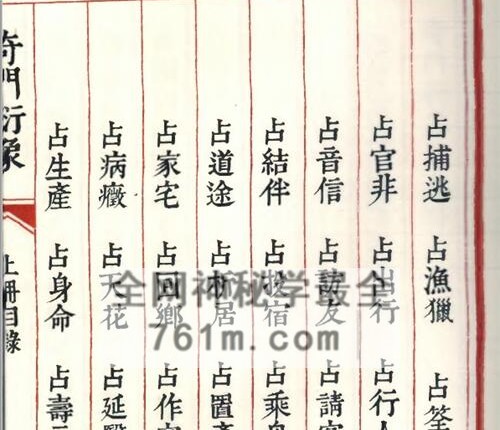 占捕逃 占漁獵 占
占官非 占出行 占行人
占音信 占訪友 占請
占結伴 占投宿 占乘
占道途 占居 占置產
占家宅 占回鄉 占作
占病癥 占天花 占延醫
占生產 占身命 占壽
奇門衍象 上冊目錄
全网神秘学最全
761m.com